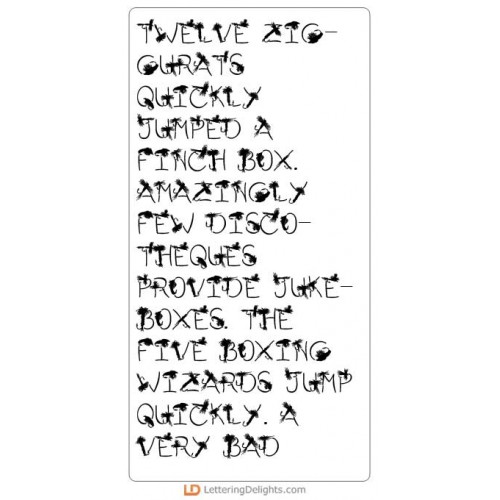 TWELVE ZIG-
GURATS
QUICKLY
JUMPED A
FINCH BOX.
AMAZINGLY
FEW DISCO-
THEQUES
PROVIDE JUKE-
BOXES. THE
FIVE BOXING
WIZARDS JUMP
QUICKLY. A
VERY BAD
LD LetteringDelights.com